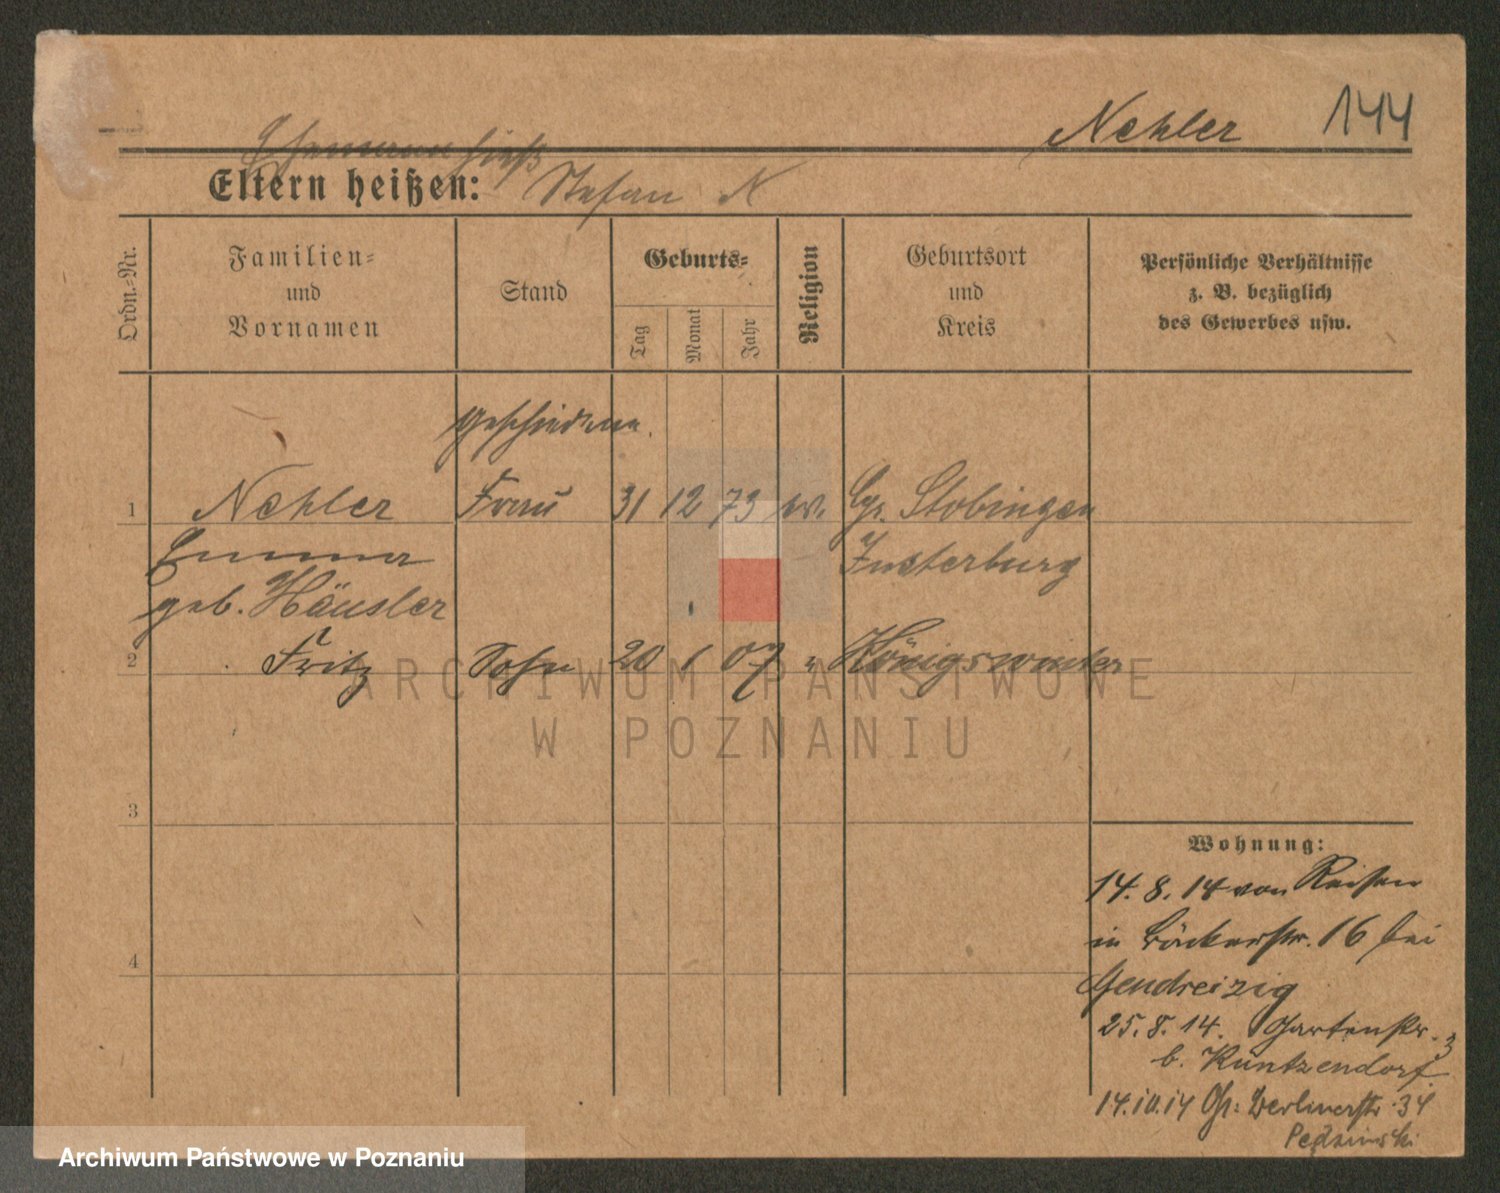 Nehler 144
Ehemann hieß
Eltern heißen: Stefan N
Ordn.-Nr.
Familien-
und
Vornamen
Stand
Geburts-
Tag
Monat
Jahr
Religion
Geburtsort
und
Kreis
Persönliche Verhältnisse
z. B. bezüglich
des Gewerbes usw.
geschiedene
1 Nehler Frau 31 12 73 ev. Gr. Stobingen
Emma Insterburg
geb. Häusler
2 Fritz Sohn 20 1 07 " Königswinter
ARCHIWUM PAŃSTWOWE
W POZNANIU
3
4
Wohnung:
14. 8. 14 von Reisen
in Bäckerstr. 16 bei
Gendreizig
25. 8. 14. Gartenstr. 3
b. Kuntzendorf
14.10.14 Berlinerstr. 34
Archiwum Państwowe w Poznaniu